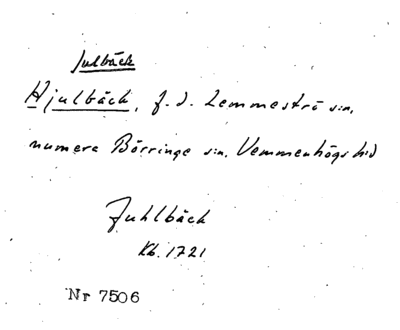 Julbäck
Hjulbäck, f.d. Lemmeströ sn,
numera Börringe sn. Vemmenhögs hd
Juhlbäck
Kb. 1721
Nr 7506